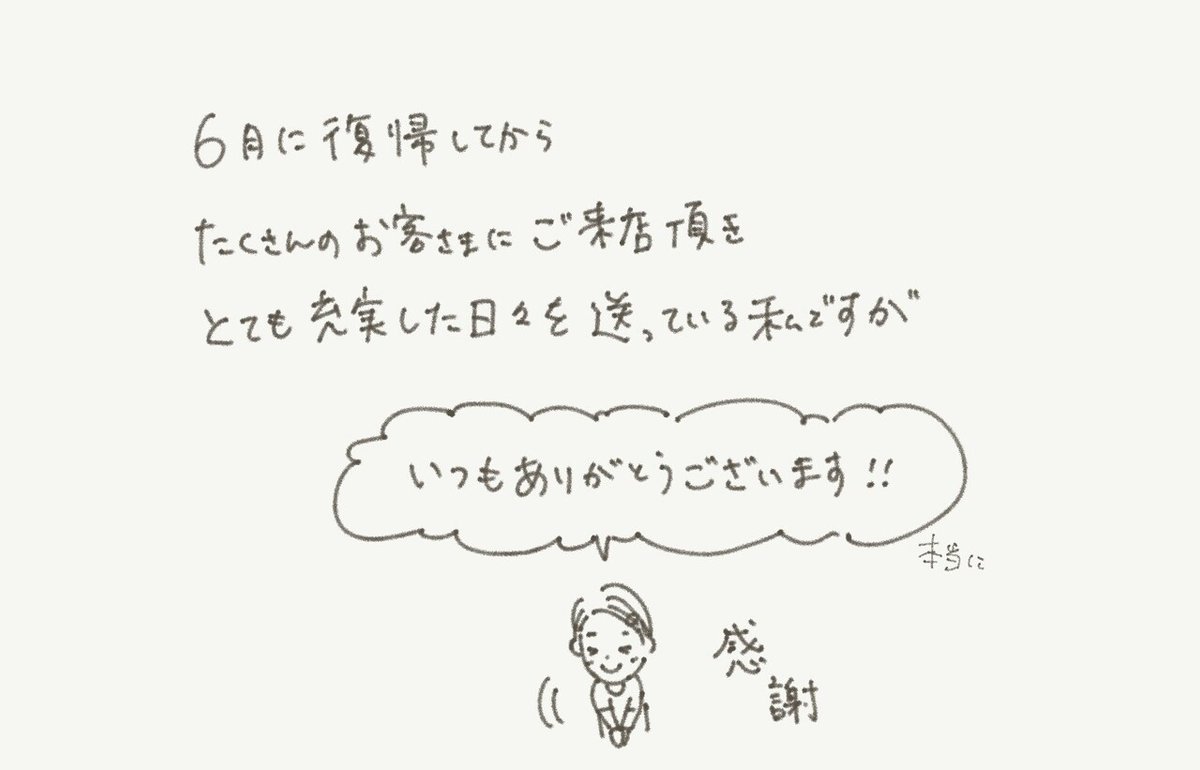 6月に復帰してから
たくさんのお客さまにご来店頂き
とても充実した日々を送っている私ですが
いつもありがとうございます!!
本当に
感
謝